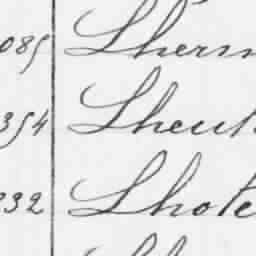 085 Lherm
354 Lheut
232 Lhote